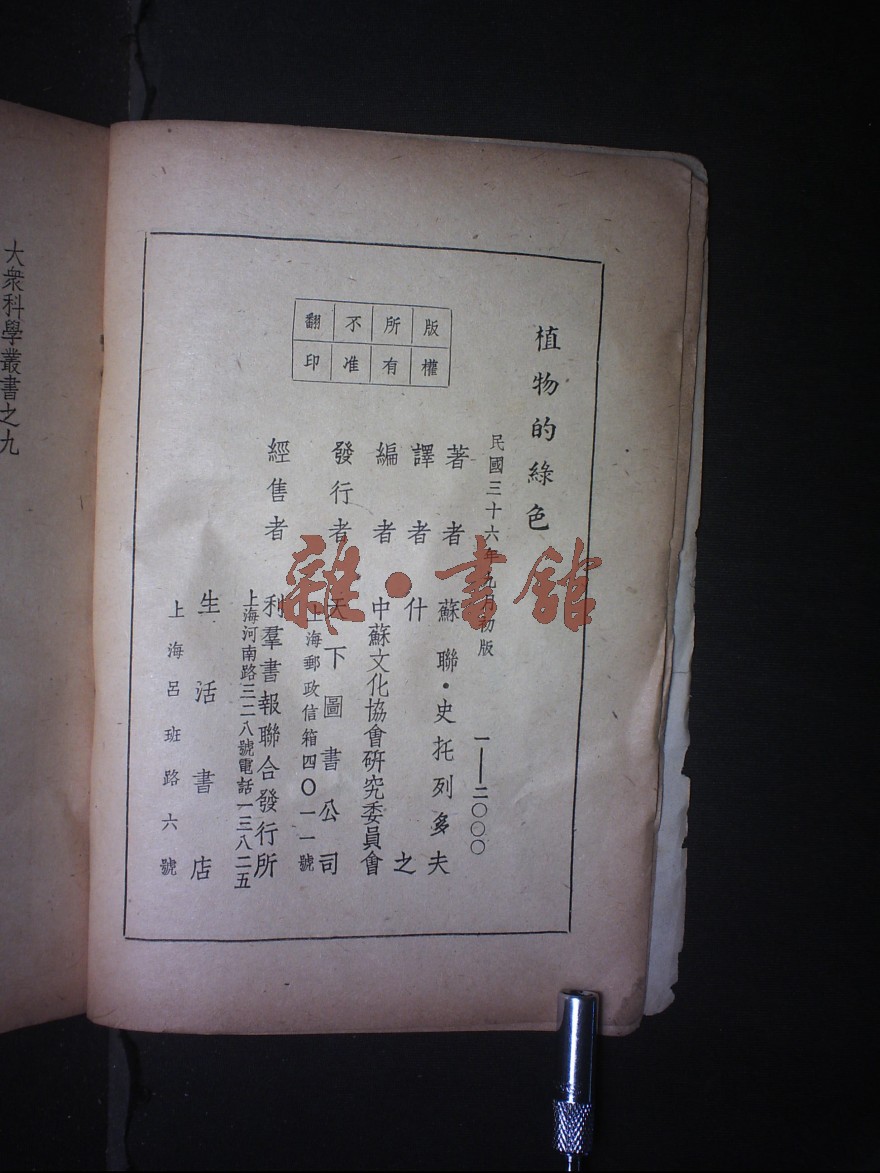 植物的綠色
民國三十六年九月初版 一——二〇〇〇
著者 蘇聯·史托列多夫
譯者 什之
編者 中蘇文化協會研究委員會
發行者 天下圖書公司
上海郵政信箱四〇一一號
經售者 利羣書報聯合發行所
上海河南路三二八號電話一三八二五
生活書店
上海呂班路六號
版權所有不准翻印
大衆科學叢書之九
雜·書館